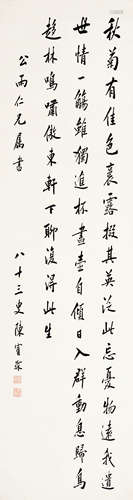 秋菊有佳色裛露掇其英泛此忘憂物遠我遺
世情一觴雖獨進杯盡壺自傾日入群動息歸鳥
趨林鳴嘯傲東軒下聊復得此生
公雨仁兄屬書
八十三叟陳寶琛